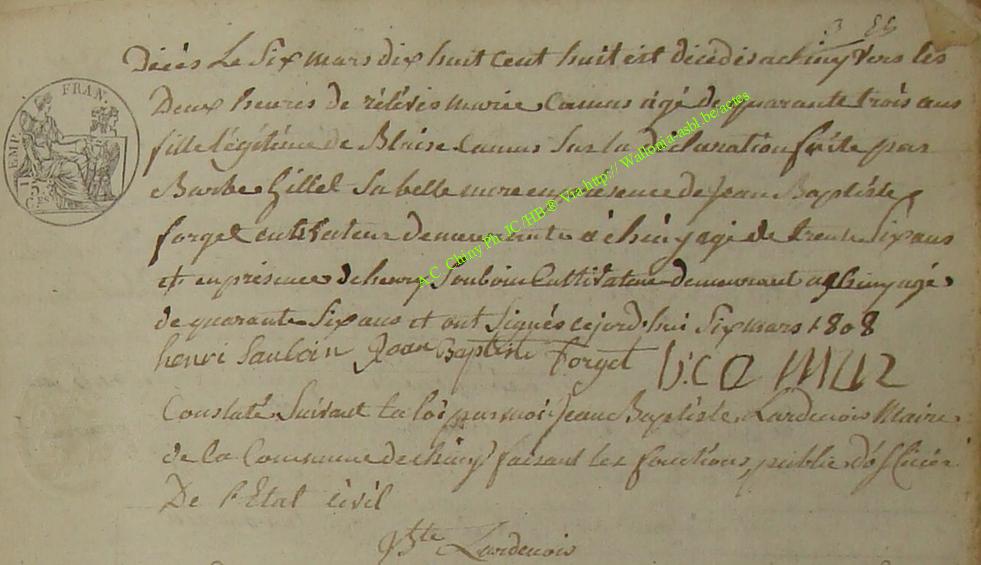 Décès Le Six mars dix huit cent huit est décédés a chiny vers les
Deux heures de rélévés marie Camus agé de quarante trois ans
fille légitime de Blaise Camus Sur la déclaration faite par
Barbe Gillet Sa belle mere en présence de Jean Baptiste
forget cultivateur demeurante à chiny agé de trente Six ans
et en présence de henry Cultivateur demeurant a chiny agé
de quarante Six ans et ont Signés ce jord'hui Six mars 1808
henri Jean Baptiste Forget
Constaté Suivant la loi par moi Jean Baptiste Lardenois Maire
de la Commune de chiny faisant les fonctions public d'officier
De l'Etat civil
Lardenois
EMP. FRAN.
5
C.ES
A.C. Chiny Ph. JC /HB® Via http:// Wallonia-asbl.be/actes